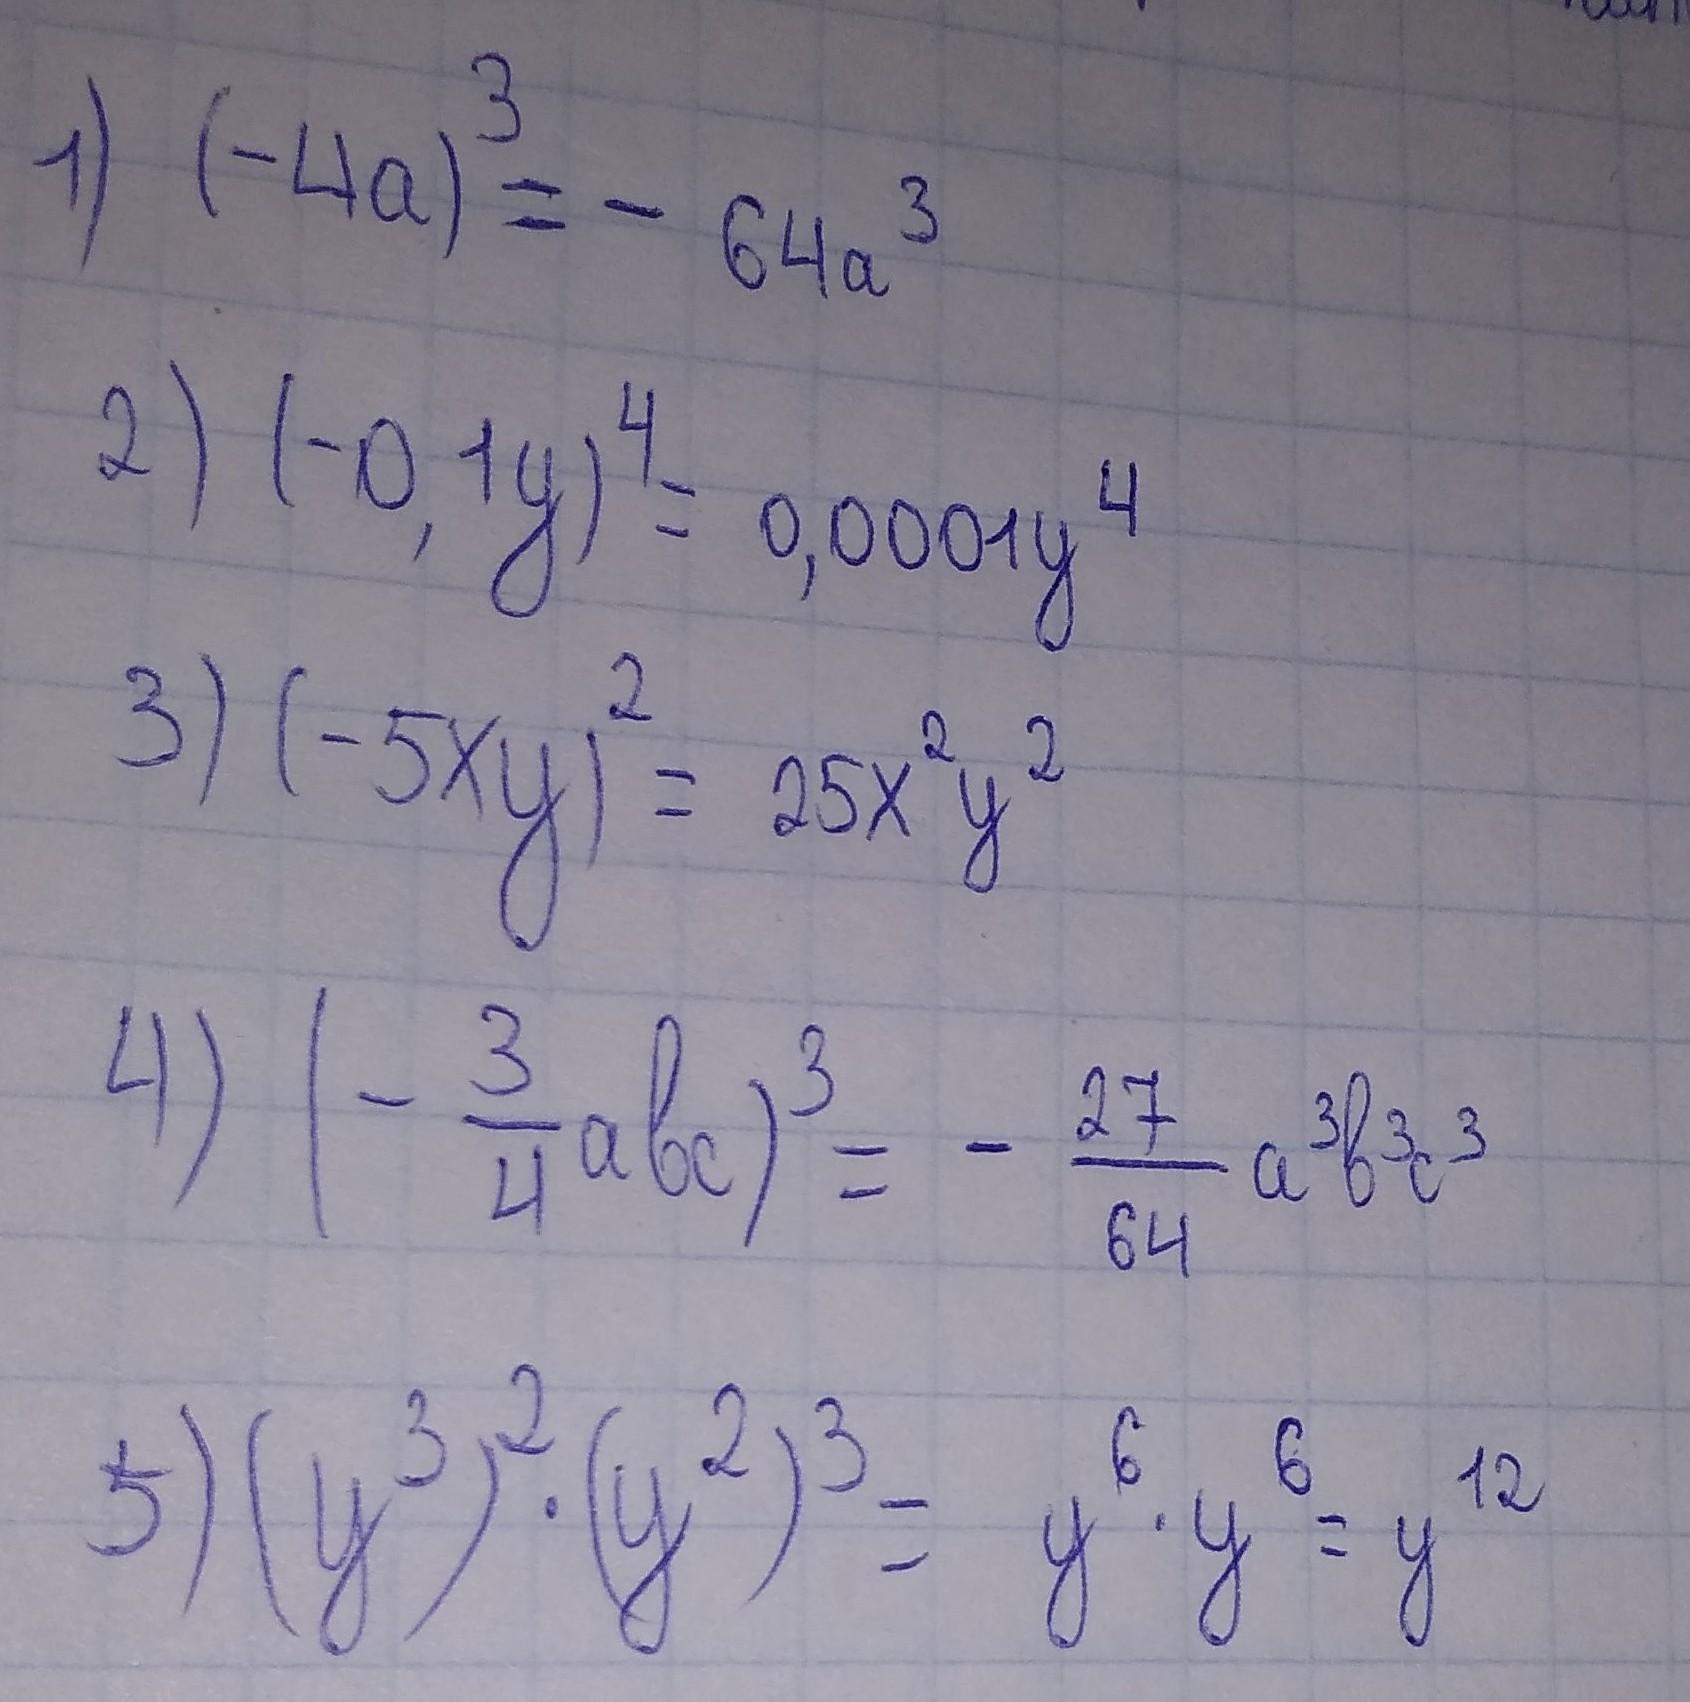 1) (-4a)³ = - 64a³
2) (-0,1y)⁴ = 0,0001y⁴
3) (-5xy)² = 25x²y²
4) (- 3/4 abc)³ = - 27/64 a³b³c³
5) (y³)² · (y²)³ = y⁶ · y⁶ = y¹²